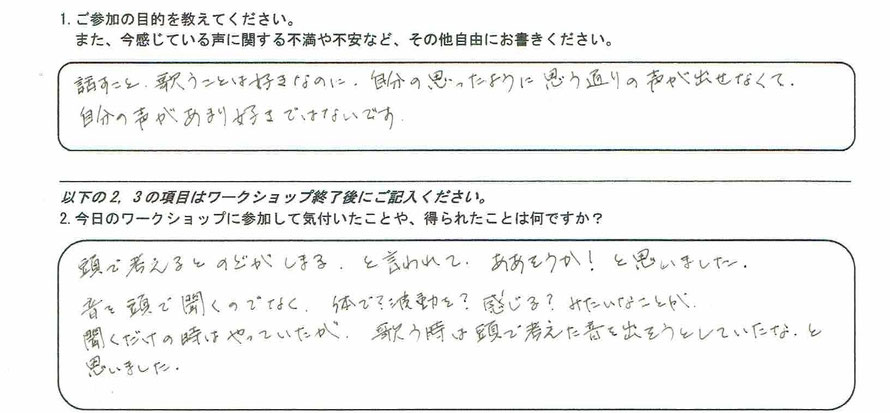 1. ご参加の目的を教えてください。
また、今感じている声に関する不満や不安など、その他自由にお書きください。
話すこと、歌うことは好きなのに、自分の思ったように思う通りの声が出せなくて、
自分の声があまり好きではないです。
以下の2, 3の項目はワークショップ終了後にご記入ください。
2. 今日のワークショップに参加して気付いたことや、得られたことは何ですか？
頭で考えるとのどがしまる、と言われて、ああそうか！と思いました。
音を頭で聞くのでなく、体で？波動を？感じる？みたいなことが、
聞くだけの時はやっていたが、歌う時は頭で考えた音を出そうとしていたな、と
思いました。